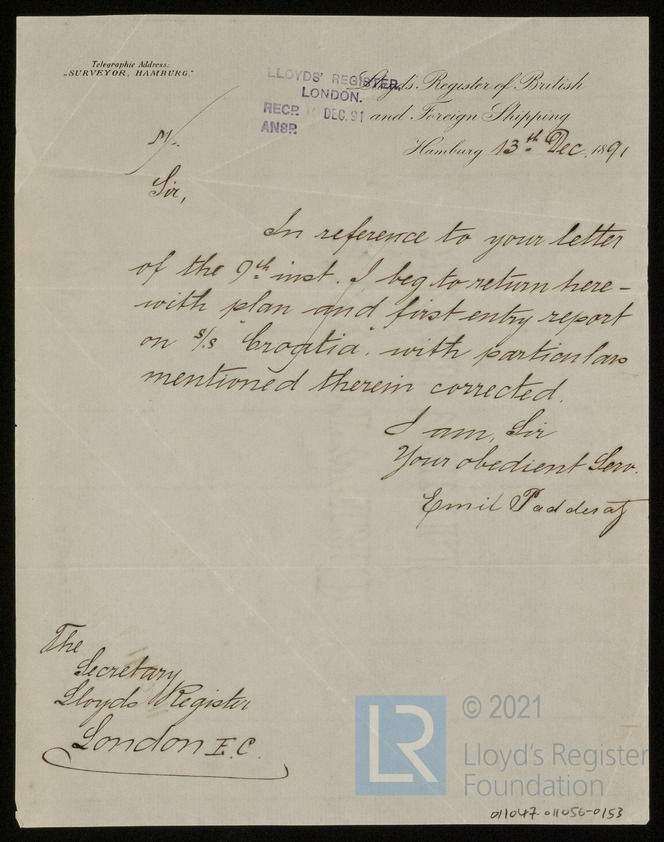 Telegraphic Address:
„SURVEYOR, HAMBURG."
LLOYDS' REGISTER,
LONDON.
RECD. DEC. 91
ANSD.
Lloyd's Register of British
and Foreign Shipping
Hamburg 13th Dec. 1891
Sir,
In reference to your letter
of the 9th inst. I beg to return here-
with plan and first entry report
on s/s "Croatia" with particulars
mentioned therein corrected.
I am, Sir
Your obedient Serv.
Emil Padderatz
The
Secretary
Lloyds Register
London E.C.
LR
© 2021
Lloyd's Register
Foundation
011047-011056-0153